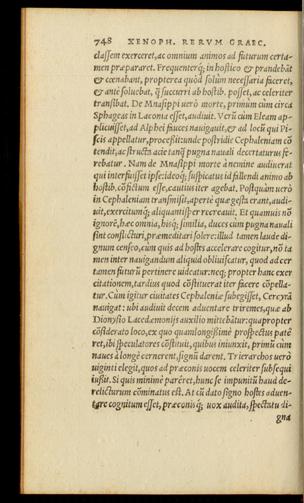 748 XENOPH. RERVM GRAEC.
classem exerceret, ac omnium animos ad futurum certa-
men præpararet. Frequenterq́; in hostico & prandebāt
& cœnabant, propterea quòd solùm necessaria faceret,
& antè soluebat, q̄ succurri ab hostib. posset, ac celeriter
transibat. De Mnasippi uerò morte, primùm cùm circa
Sphageas in Laconia esset, audiuit. Verũ cùm Eleam ap-
plicuisset, ad Alphei fauces nauigauit, & ad locũ qui Pi-
scis appellatur, processit unde postridie Cephaleniam cō
tendit, ac structa acie tanq̄ pugna nauali decertaturus fe-
rebatur. Nam de Mnasippi morte à nemine audiuerat
qui interfuisset ipse: ideoq́; suspicatus id fallendi animo ab
hostib. cōfictum esse, cautius iter agebat. Postquàm uerò
in Cephaleniam transmisit, apertè quæ gesta erant, audi-
uit, exercitumq́; aliquantisper recreauit. Et quamuis nō
ignorē, hæc omnia, hisq́; similia, duces cùm pugna nauali
sint conflicturi, præmeditari solere: illud tamen laude di-
gnum censeo, cùm quis ad hostes accelerare cogitur, nō ta
men inter nauigandum aliquid obliuiscatur, quod ad cer
tamen futurũ pertinere uideatur: neq; propter hanc exer
citationem, tardius quod cōstituerat iter facere cōpella-
tur. Cùm igitur ciuitates Cephaleniæ subegisset, Cercyrā
nauigat: ubi audiuit decem aduentare triremes, quæ ab
Dionysio Lacedæmonijs auxilio mittebātur: quapropter
cōsiderato loco, ex quo quamlongißimè prospectus patē
ret, ibi speculatores cōstituit, quibus iniunxit, primũ cùm
naues à longè cernerent, signũ darent. Trierarchos uerò
uiginti elegit, quos ad præconis uocem celeriter subsequi
iußit. Si quis minimè paréret, hunc se impunitũ haud de-
relicturum cōminatus est. At cũ dato signo hostes aduen-
tare cognitum esset, præconisq́; uox audita, spectatu di-
gna